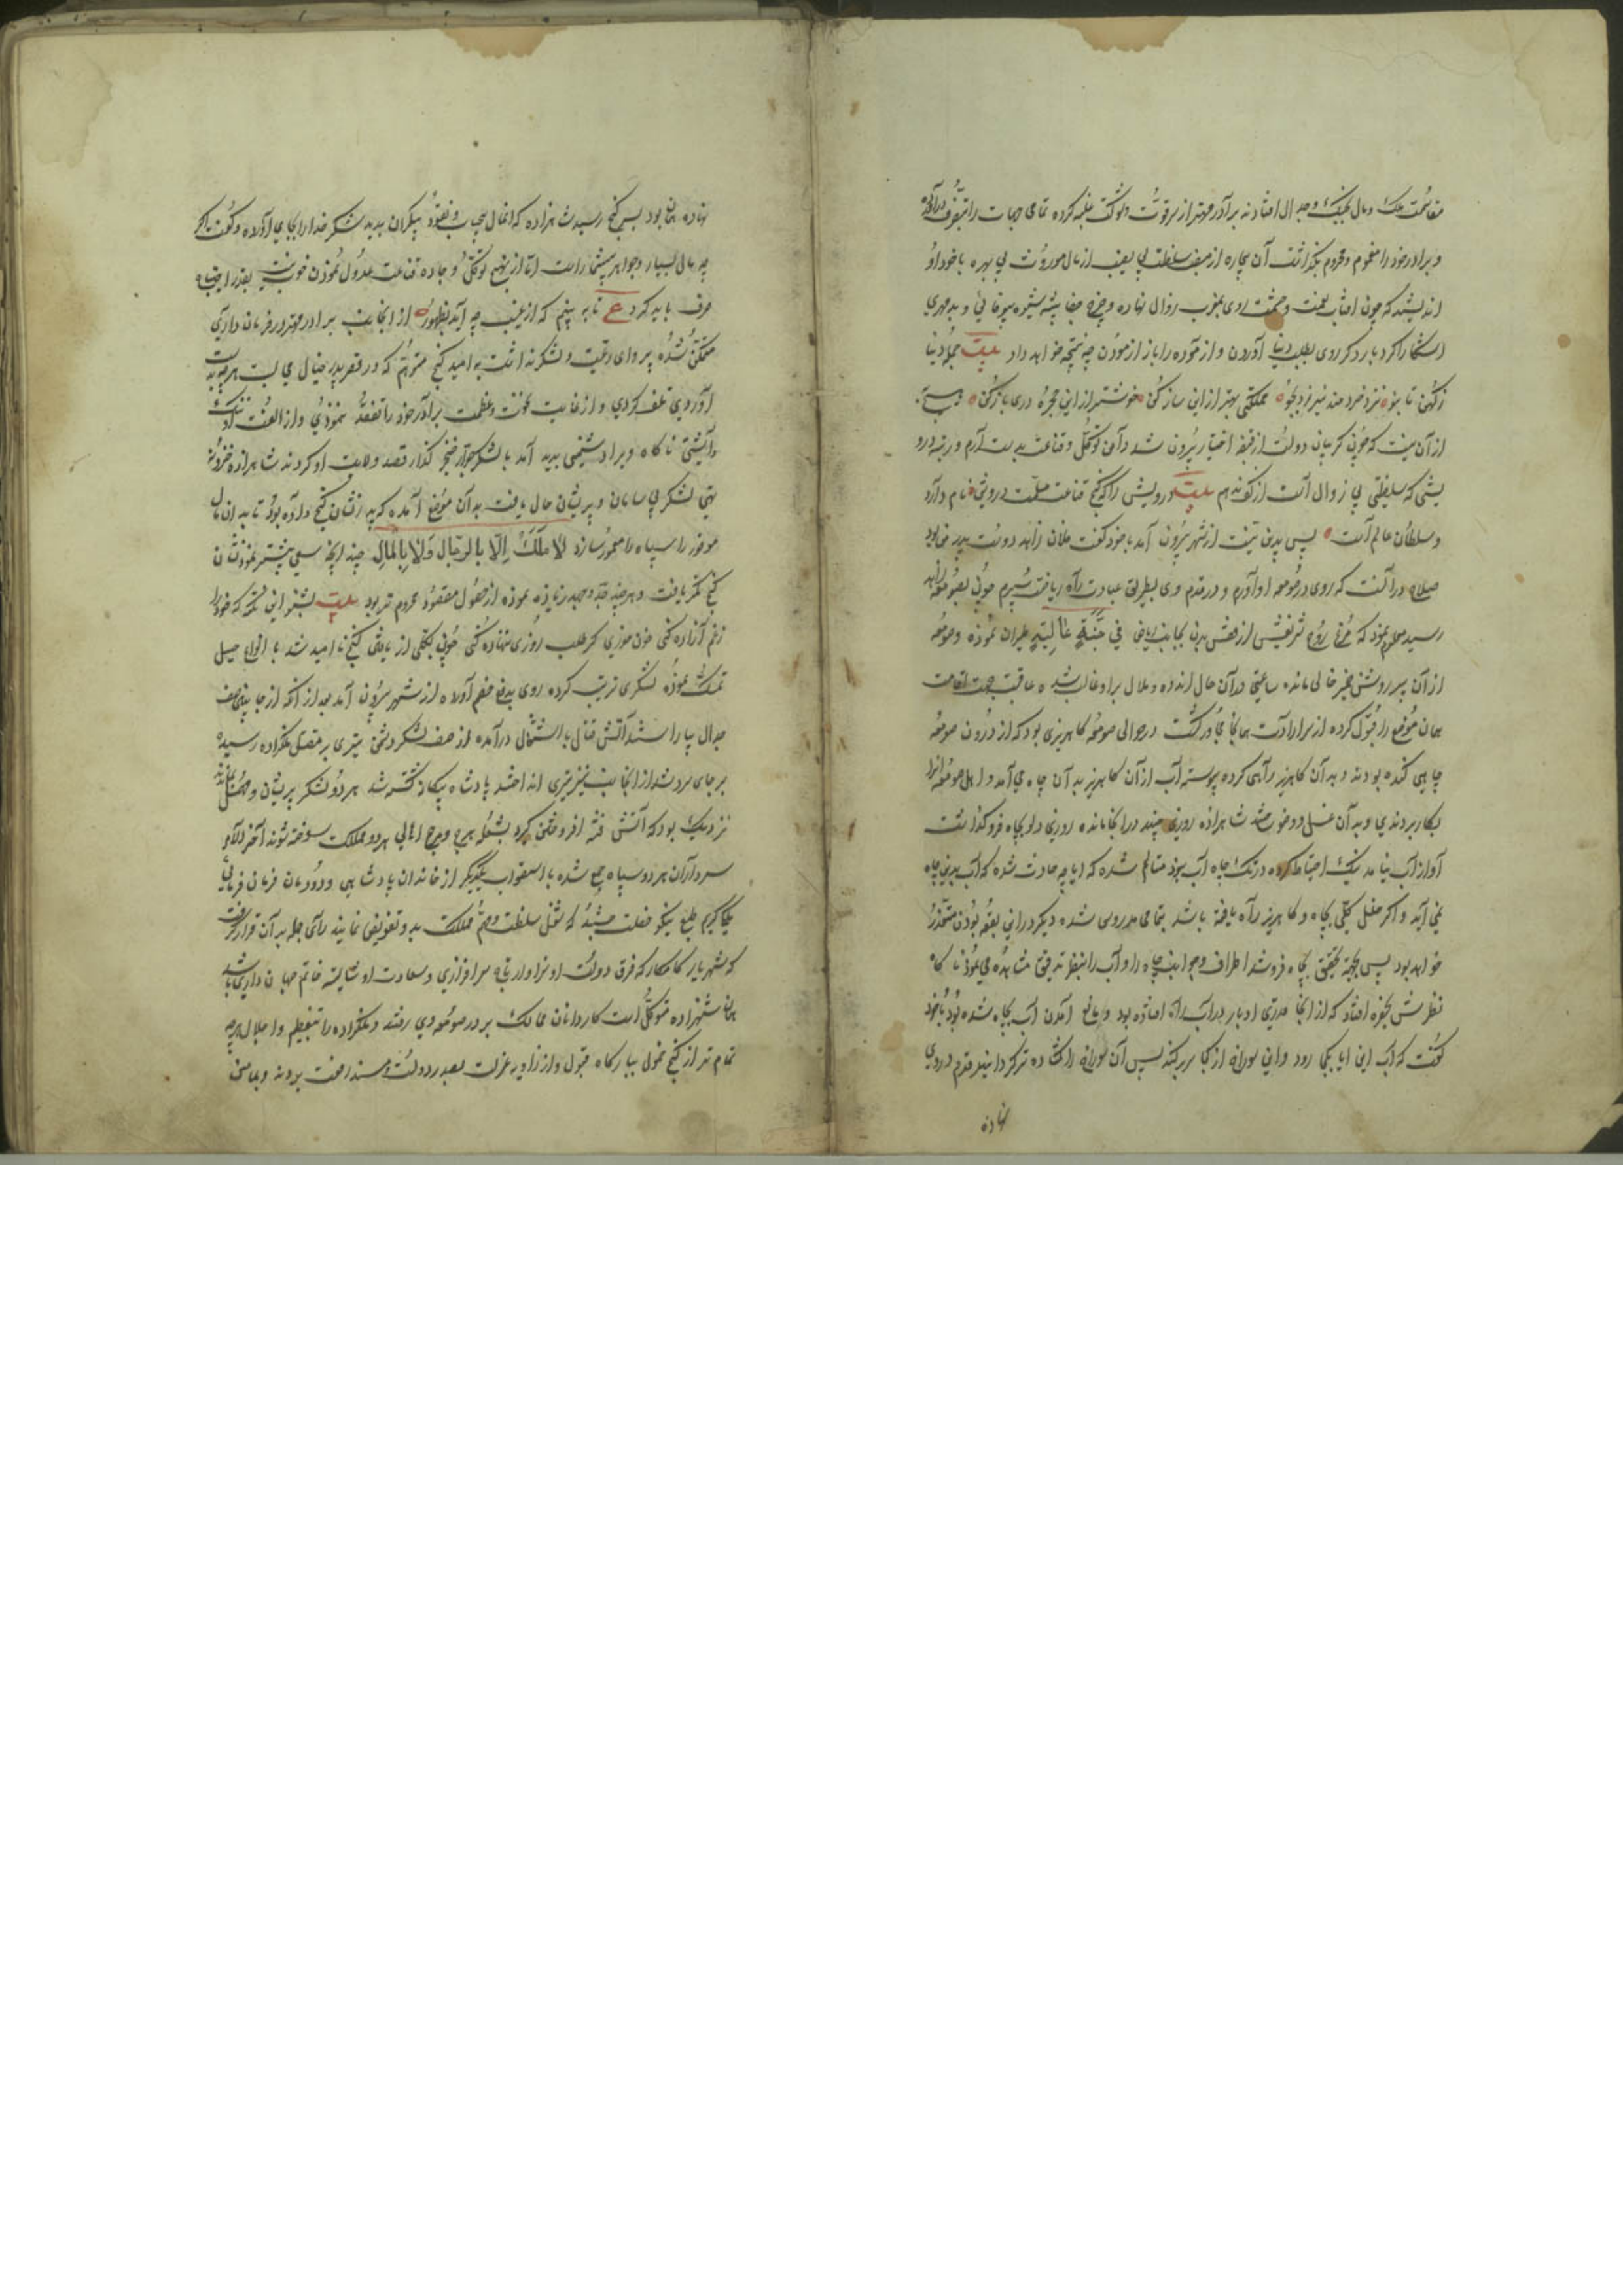 مقاسمت ملک و مال بجنگ و جدال افتادند برادر مهتر از سر قوت و شوکت غلبه کرده تمامی جهات را بتصرف درآورد
و برادر خود را مغموم و محروم بگذاشت آن بیچاره از منصب سلطنت بی نصیب از مال موروث بی بهره با خود
اندیشید که چون آفتاب نعمت و حشمت روی بغروب زوال نهاده و چرخ جفا پیشه شیوه بیوفائی و بدمهری
آشکارا کرد بار دیگر روی بطلب دنیا آوردن و آزموده را باز آزمودن چه نتیجه خواهد داد بیت جمله دنیا
ز کهن تا بنو نزد خردمند نیرزد بجو مملکتی بهتر ازین ساز کن خوشتر ازین حجره دری باز کن
ازان نیست که چون گریبان دولت از قبضه اختیار بیرون شد دامن توکل و قناعت بدست آرم و رتبه درو
یشی که سلطنتی بی زوال است از کف ندهم بیت درویش را که گنج قناعت مسلمست درویش نام دارد
و سلطان عالم است پس بدین نیت از شهر بیرون آمد با خود گفت فلان زاهد دوست پدر من بود
صلاح در آنست که روی در صومعه او آورم و در قدم وی بطریق عبادت راه ریاضت سپرم چون بصومعه زاهد
رسید معلوم نمود که مرغ روح شریفش از قفس بدن بجانب ریاض فی جنة عالیة طیران نموده و صومعه
ازان پیر روشن ضمیر خالی مانده ساعتی درآن حال اندوه و ملال برو غالب شد و عاقبت جهت اقامت
همان موضع را قبول کرده از سر ارادت همانجا مجاور گشت در حوالی صومعه کاهریزی بود که از درون صومعه
چاهی کنده بودند و بدآن کاهریز راهی کرده پیوسته آب از آن کاهریز بدآن چاه می آمد و اهل صومعه آنرا
بکار بردندی و بدآن غسل و وضو ساختندی شاهزاده روزی چند درآنجا مانده روزی دلو بچاه فرو گذاشت
آواز آب نیامد نیک احتیاط کرده در تک چاه آب نبود متأمل شده که آیا چه حادث شده که آب بدین چاه
نمی آید و اگر خلل کلی بچاه و کاهریز راه یافته باشد بتمامی مدروس شده دیگر درین بقعه بودن متعذر
خواهد بود پس بجهة تحقیق بچاه فرو شد اطراف و جوانب چاه را و آب را بنظر تدقیق مشاهده می نمود ناگاه
نظرش بحفره افتاد که از آنجا قدری ادبار در آب راه افتاده بود و مانع آمدن آب بچاه شده بود با خود
گفت که آب این آیا بکجا رود و این سوراخ از کجا سر برکند پس آن سوراخ را گشاده تر گردانید قدم دروی
نهاده
نهاده همان بود بسر گنج رسید شاهزاده که آن مال بیحساب و نقود بیکران بدید شکر خدا را بجای آورده و گفت اگر
چه مال بسیار و جواهر بیشمار است اما از نهج توکل و جاده قناعت عدول نمودن خوب نیست بقدر احتیاج
صرف باید کرد ع تا به بینم که از غیب چه آید بظهور از آنجانب برادر مهتر در فرمان داری
متمکن شده پروای رعیت و لشکر نداشت به امید گنج متوهم که در قصر پدر خیال می بست هر چه بدست
آوردی تلف کردی و از غایت نخوت و عظمت برادر خود را تفقد ننمودی و از الفت او ننگ
داشتی ناگاه ویرا دشمنی پدید آمد با لشکر جرار خنجر گذار قصد ولایت او کردند شاهزاده خزینه
تهی لشکر بی سامان و پریشان حال یافت بدآن موضع آمده که پدر نشان گنج داده بود تا به آن مال
موفور را سپاه را معمور سازد لا ملک الا بالرجال ولا بالمال چند آنچه سعی بیشتر نمود نشان
گنج کمتر یافت و هر چند جد و جهد زیاده نموده از حصول مقصود محروم تر بود بیت بشنو این نکته که خود را
ز غم آزاده کنی خون خوری گر طلب روزی ننهاده کنی چون بکلی از یافتن گنج نا امید شد با انواع حیل
تمسک نموده لشکری ترتیب کرده روی بدفع خصم آورده از شهر بیرون آمد بعد از آنکه از جانبین صف
جدال بیاراستند آتش قتال باشتعال درآمده از صف لشکر دشمن تیری بر مقتل ملکزاده رسید و
بر جای سرد شد از آنجانب نیز تیری انداختند پادشاه بیگانه کشته شد هر دو لشکر پریشان و مهمل ماندند
نزدیک بود که آتش فتنه افروختن گیرد بشعله هرج و مرج اهالی هر دو مملکت سوخته شوند آخر الامر
سرداران هر دو سپاه جمع شده با استصواب یکدیگر از خاندان پادشاهی و دودمان فرمان فرمائی
ملک کریم طبع نیکو خصلت میشد که شغل سلطنت و مهم مملکت بدو تفویض نمایند رأی جمله بر آن قرار گرفت
که شهریار کامکار که فرق دولت او سزاوار تاج سرافرازی و سعادت او شایسته خاتم جهانداری باشد
همان شهزاده متوکل است کاردانان ممالک بر در صومعه وی رفتند و ملکزاده را بتعظیم و اجلال هر چه
تمام تر از کنج خمول ببارگاه قبول و از زاویه عزلت بصدر دولت و مسند رفعت بردند و به یمن